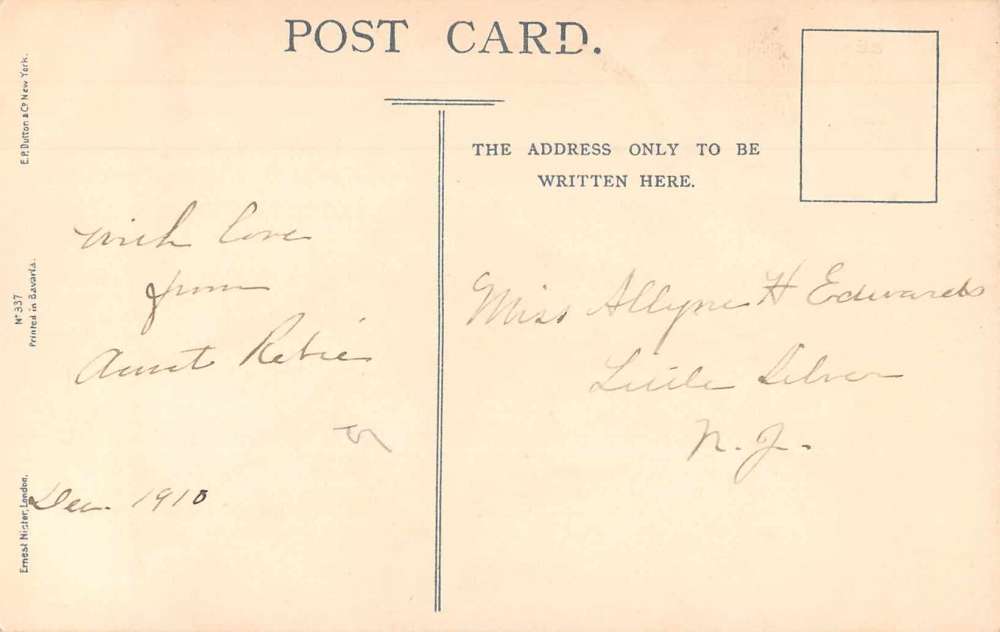 POST CARD.
THE ADDRESS ONLY TO BE
WRITTEN HERE.
E.P. Dutton & Co New York.
No 337
Printed in Bavaria.
Ernest Nister, London.
with love
from
Aunt Rebie
Dec. 1910
Miss Allyne H Edwards
Little Silver
N. J.